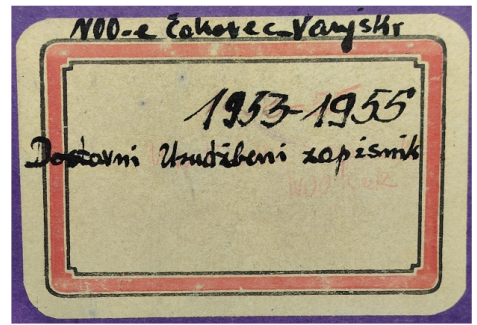 NOO-e Čakovec-Vanjski
1953-1955
Dostavni Urudžbeni zapisnik
NOO